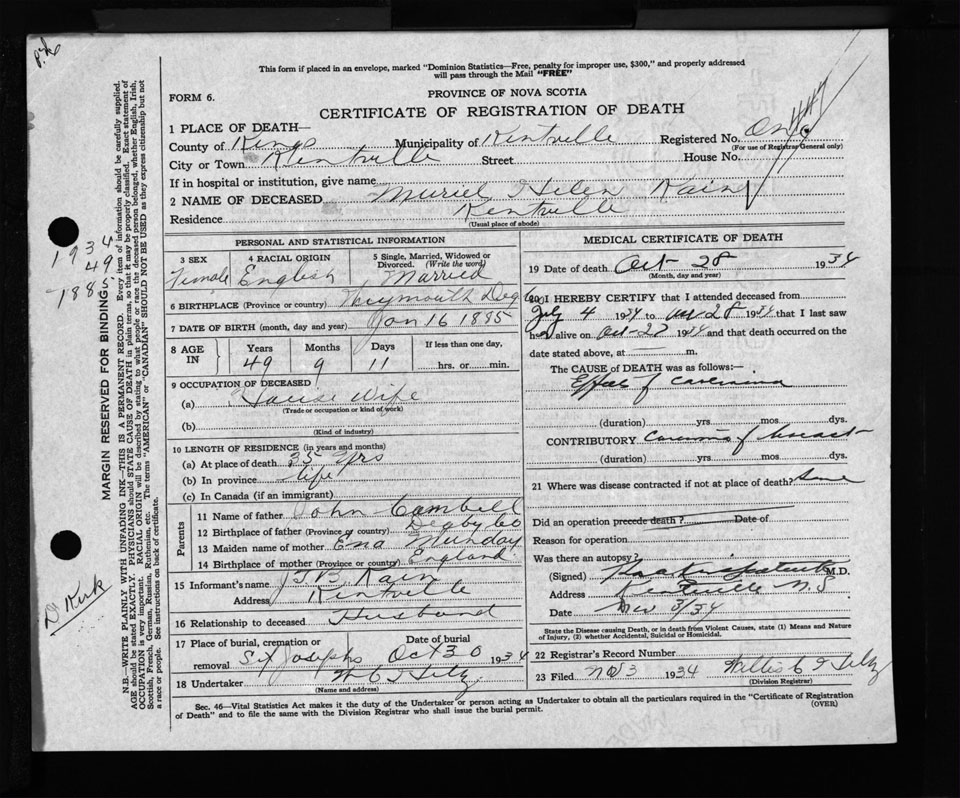 This form if placed in an envelope, marked "Dominion Statistics—Free, penalty for improper use, $300," and properly addressed
will pass through the Mail "FREE"
FORM 6.
PROVINCE OF NOVA SCOTIA
CERTIFICATE OF REGISTRATION OF DEATH
1 PLACE OF DEATH—
County of Kings Municipality of Kentville Registered No.
(For use of Registrar General only)
City or Town Kentville Street House No.
If in hospital or institution, give name
2 NAME OF DECEASED Muriel Helen Kain
Residence Kentville
(Usual place of abode)
PERSONAL AND STATISTICAL INFORMATION
3 SEX Female
4 RACIAL ORIGIN English
5 Single, Married, Widowed or Divorced. (Write the word) Married
6 BIRTHPLACE (Province or country) Weymouth Digby Co
7 DATE OF BIRTH (month, day and year) Jan 16 1885
8 AGE IN Years 49 Months 9 Days 11 If less than one day, hrs. or min.
9 OCCUPATION OF DECEASED
(a) House Wife
(Trade or occupation or kind of work)
(b)
(Kind of industry)
10 LENGTH OF RESIDENCE (in years and months)
(a) At place of death 35 Yrs
(b) In province life
(c) In Canada (if an immigrant)
Parents
11 Name of father John Cambell
12 Birthplace of father (Province or country) Digby Co
13 Maiden name of mother Ena Munday
14 Birthplace of mother (Province or country) England
15 Informant's name J.B. Kain
Address Kentville
16 Relationship to deceased Husband
17 Place of burial, cremation or removal St Josephs Date of burial Oct 30 1934
18 Undertaker W C Hiltz
(Name and address)
MEDICAL CERTIFICATE OF DEATH
19 Date of death Oct 28 1934
(Month, day and year)
20 I HEREBY CERTIFY that I attended deceased from
July 4 1934 to Oct 28 1934 that I last saw
her alive on Oct 27 1934 and that death occurred on
date stated above, at m.
The CAUSE of DEATH was as follows:—
Effects of carcinoma
(duration) yrs mos. dys.
CONTRIBUTORY Carcinoma of breast
(duration) yrs mos. dys.
21 Where was disease contracted if not at place of death?
Did an operation precede death? Date of
Reason for operation
Was there an autopsy?
(Signed) M.D.
Address Kentville N.S
Date Nov 3/34
State the Disease causing Death, or in death from Violent Causes, state (1) Means and Nature
of Injury, (2) whether Accidental, Suicidal or Homicidal.
22 Registrar's Record Number
23 Filed Nov 3 1934 Willis C Hiltz
(Division Registrar)
Sec. 46—Vital Statistics Act makes it the duty of the Undertaker or person acting as Undertaker to obtain all the particulars required in the "Certificate of Registration
of Death" and to file the same with the Division Registrar who shall issue the burial permit.
(OVER)
MARGIN RESERVED FOR BINDING
N.B.—WRITE PLAINLY WITH UNFADING INK—THIS IS A PERMANENT RECORD. Every item of information should be carefully supplied.
AGE should be stated EXACTLY. PHYSICIANS should STATE CAUSE OF DEATH in plain terms, so that it may be properly classified. Exact statement of
OCCUPATION is very important. RACIAL ORIGIN will be described by stating to what people or race the deceased person belonged, whether English, Irish,
Scottish, French, German, Russian, Ruthenian, etc. The terms "AMERICAN" or "CANADIAN" SHOULD NOT BE USED as they express citizenship but not
a race or people. See instructions on back of certificate.
1934
49
1885
D Kirk